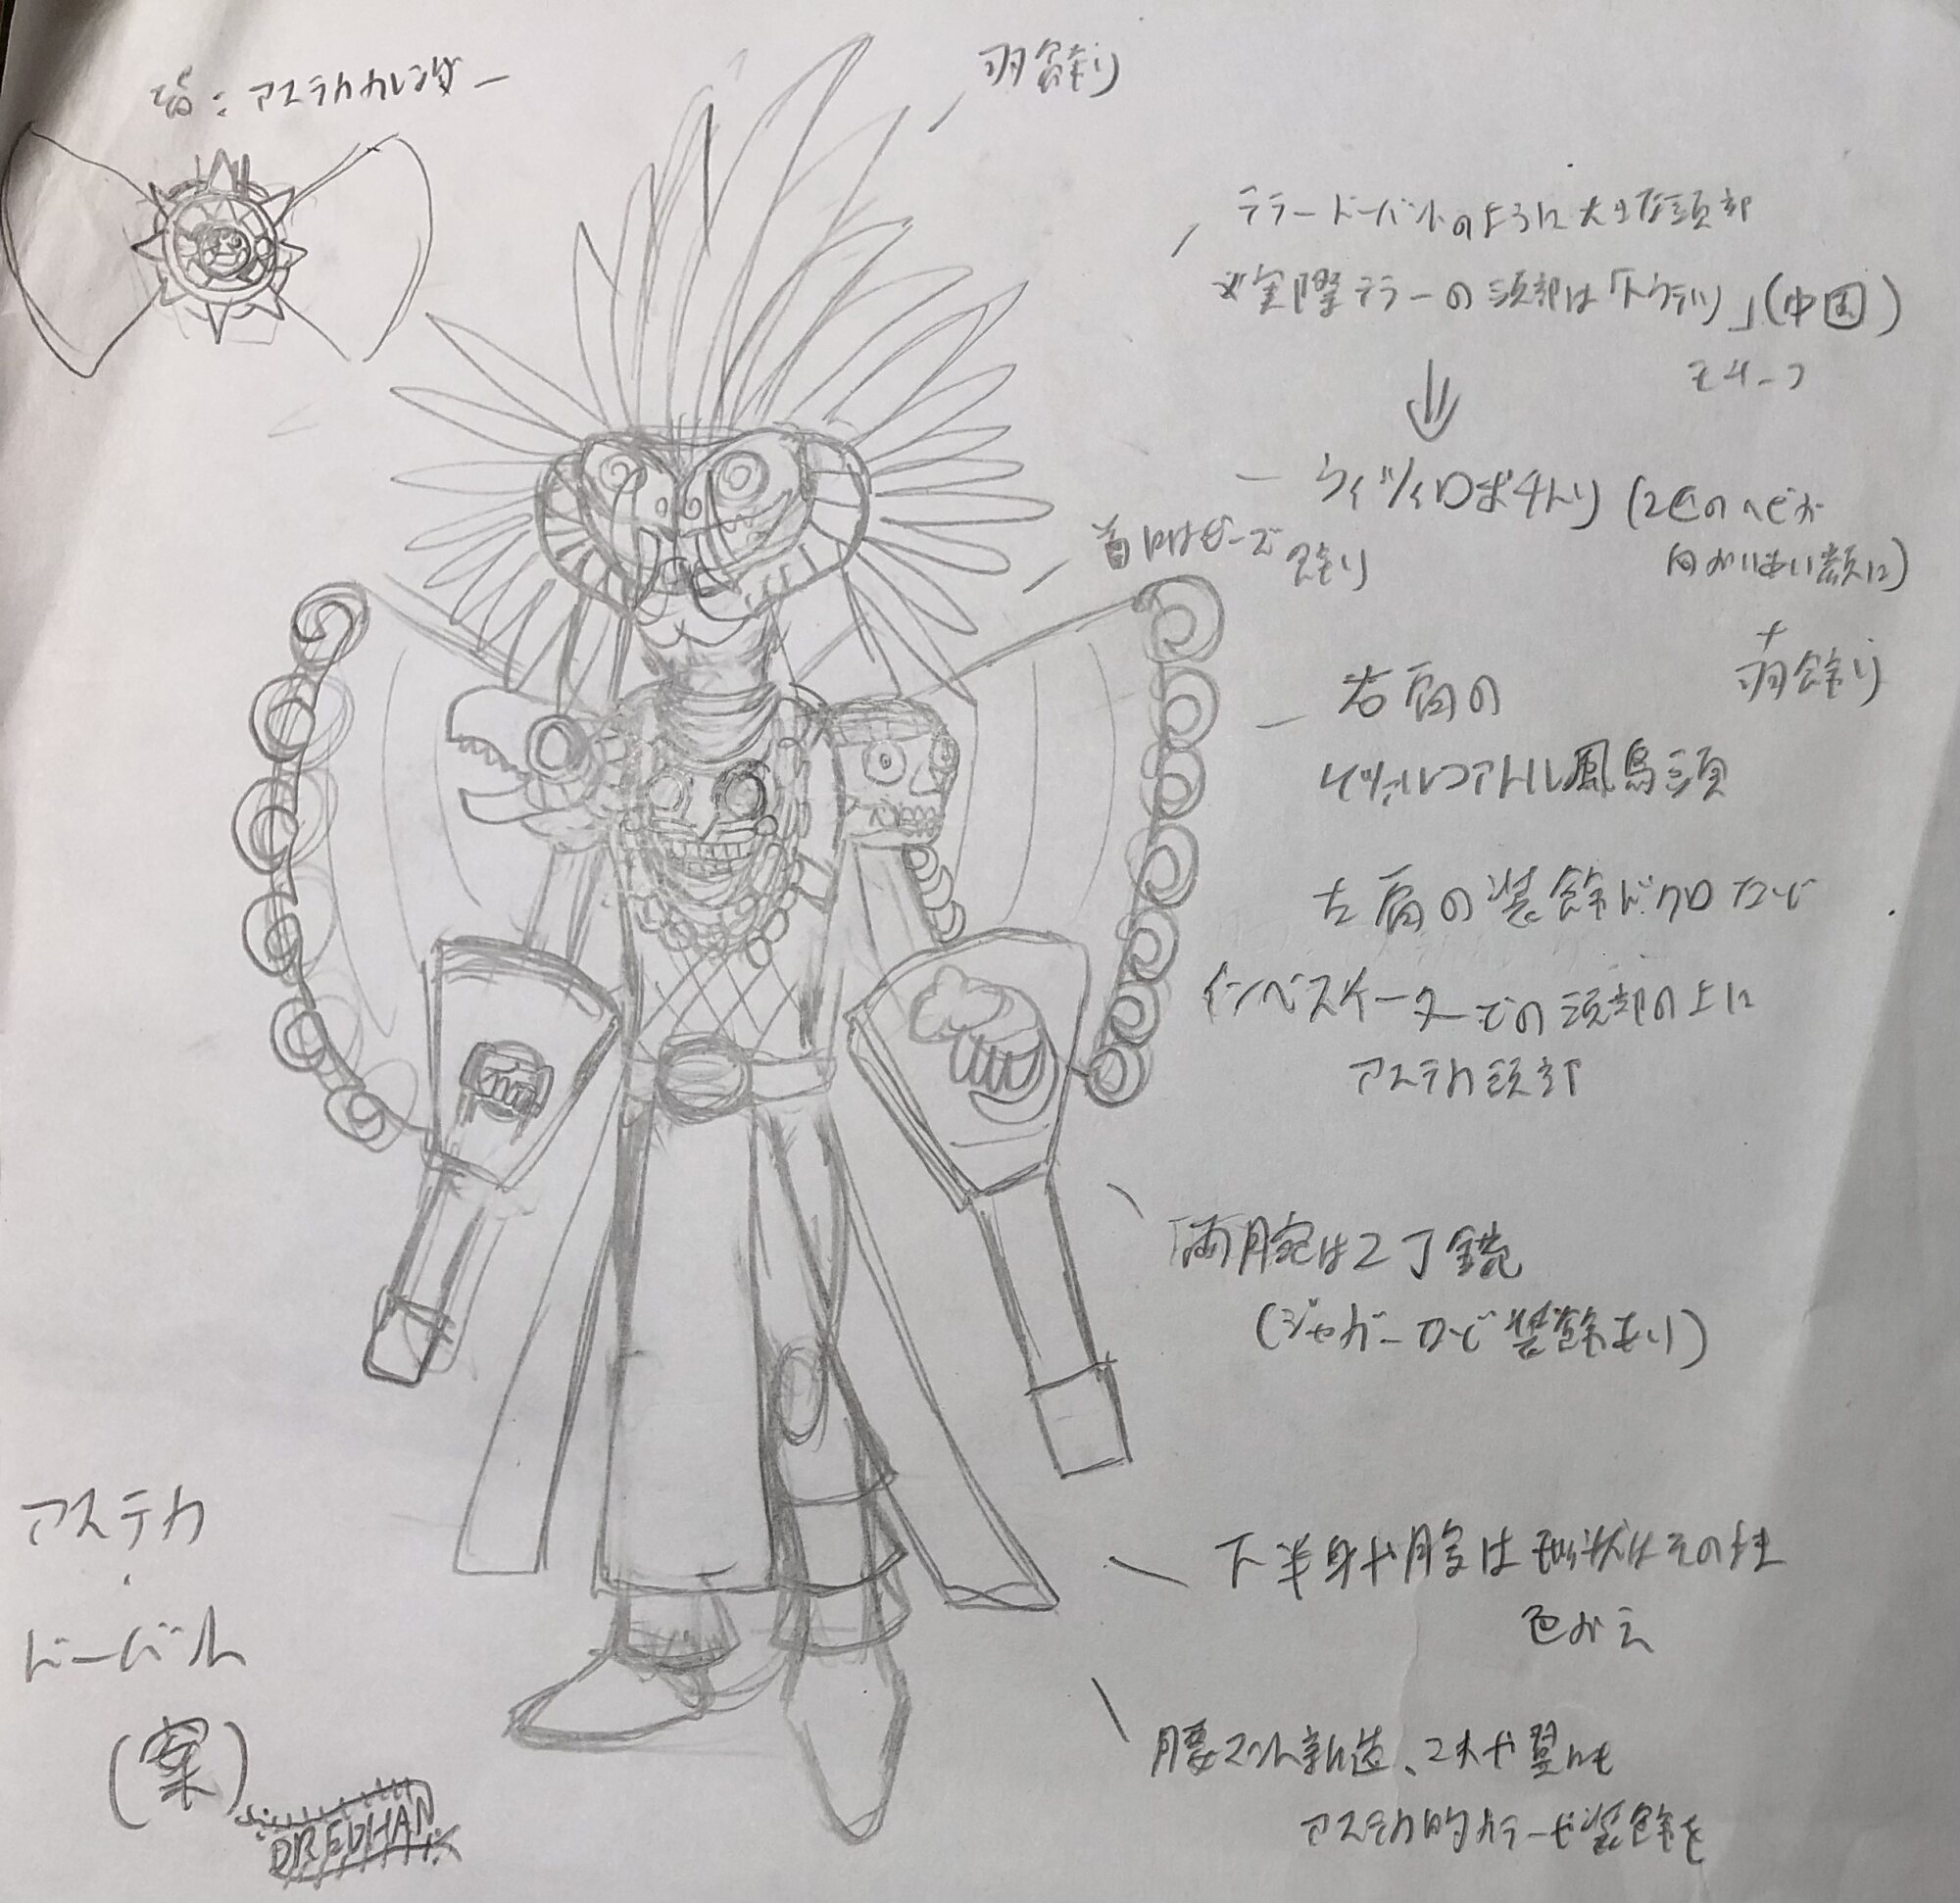 背：アステカカレンダー
羽飾り
テラードーパントのように大きな頭部
※実際テラーの頭部は「トウテツ」(中国)
モチーフ
ウィツィロポチトリ (2匹のヘビが
向かい合い顔に)
+
羽飾り
首にはビーズ
飾り
右肩の
ケツァルコアトル風鳥頭
左肩の装飾ドクロなど
の頭部の上に
アステカ頭部
両腕は2丁銃
(ジャガーなど装飾あり)
下半身や腕は形状はその性
色かえ
腰マント新造、マスクや翼にも
アステカ的カラーや装飾を
アステカ
・
ドーパント
(案)
DREDHAN